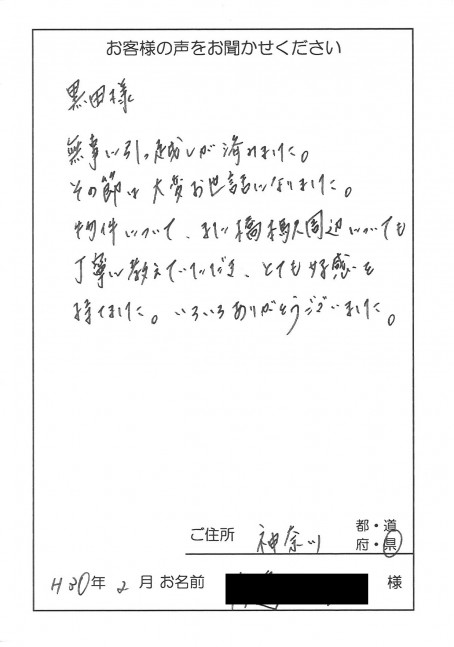 お客様の声をお聞かせください
黒田様
無事に引っ越しが済みました。
その節は大変お世話になりました。
物件について、また橋本駅周辺についても
丁寧に教えていただき、とても好感を
持てました。いろいろありがとうございました。
ご住所 神奈川 都・道
府・県
H30年 2月 お名前 様